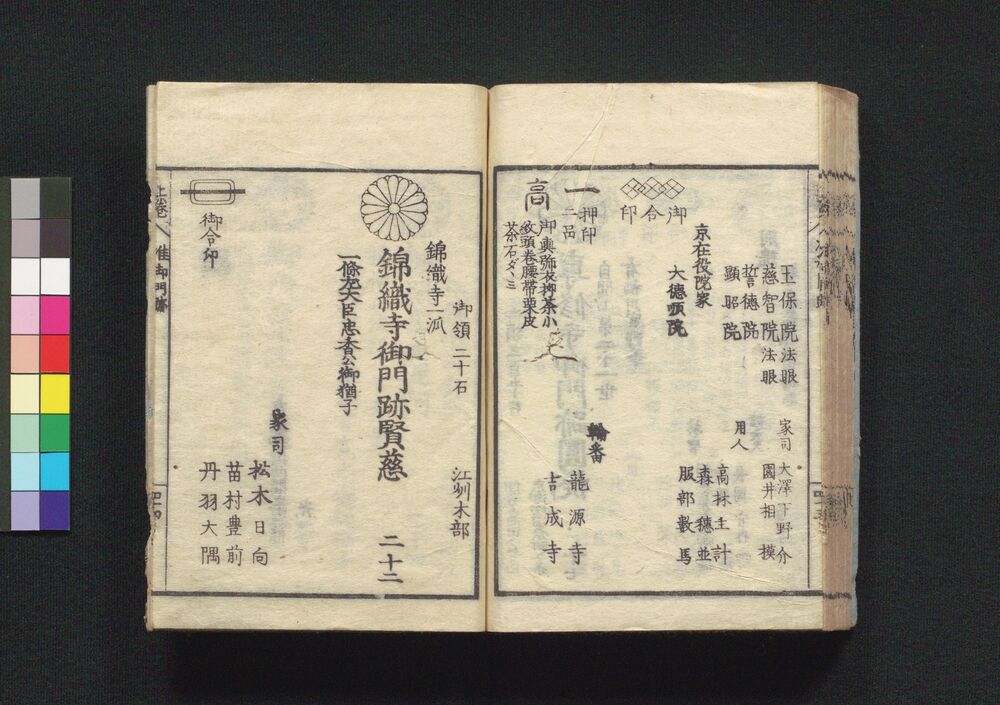 玉保院法眼
慈智院法眼
誓德院
顯昭院
家司
大澤下野介
園井相摸
用人
高林主計
森穗並
服部數馬
京在役院家
大德頊院
御合印
一
押印
二品
高
御輿
紋頭卷腰帶栗皮
茶石ダヽミ
輪番
龍源寺
吉成寺
御領二十石
江州木部
錦織寺一派
錦織寺御門跡賢慈
二十二
一條左大臣忠香公御猶子
家司
松木日向
苗村豊前
丹羽大隅
御合印
上卷
准御門跡
四十四